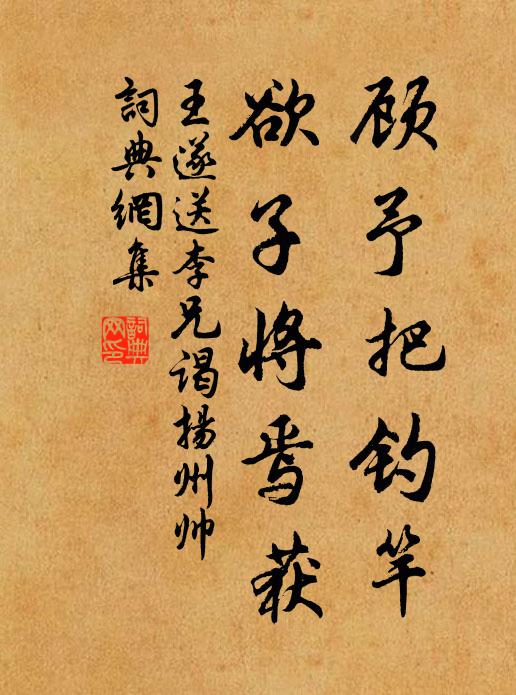 顾予把钓竿
欲子将焉获
王遂送李兄谒扬州帅
词典網集
詞典網印